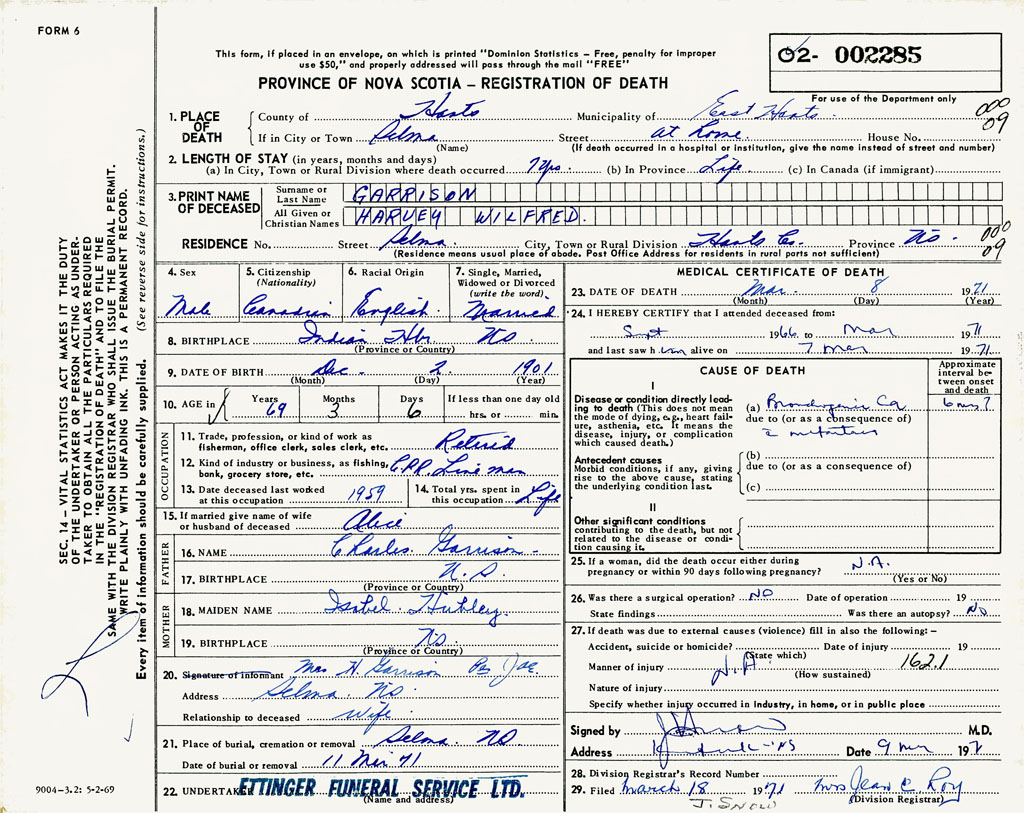 FORM 6
This form, if placed in an envelope, on which is printed "Dominion Statistics – Free, penalty for improper
use $50," and properly addressed will pass through the mail "FREE"
02- 002285
PROVINCE OF NOVA SCOTIA – REGISTRATION OF DEATH
For use of the Department only
000
09
1. PLACE OF DEATH
County of Hants Municipality of East Hants
If in City or Town Selma Street at home House No.
(Name) (If death occurred in a hospital or institution, give the name instead of street and number)
2. LENGTH OF STAY (in years, months and days)
(a) In City, Town or Rural Division where death occurred 7 yrs. (b) In Province Life (c) In Canada (if immigrant)
3. PRINT NAME OF DECEASED
Surname or Last Name GARRISON
All Given or Christian Names HARVEY WILFRED.
RESIDENCE No. Street Selma City, Town or Rural Division Hants Co. Province NS
000
09
(Residence means usual place of abode. Post Office Address for residents in rural parts not sufficient)
4. Sex Male
5. Citizenship (Nationality) Canadian
6. Racial Origin English
7. Single, Married, Widowed or Divorced (write the word) Married
8. BIRTHPLACE Indian Hbr NS
(Province or Country)
9. DATE OF BIRTH Dec. 2 1901
(Month) (Day) (Year)
10. AGE in Years 69 Months 3 Days 6 If less than one day old hrs. or min.
OCCUPATION
11. Trade, profession, or kind of work as fisherman, office clerk, sales clerk, etc. Retired
12. Kind of industry or business, as fishing, bank, grocery store, etc. Lineman
13. Date deceased last worked at this occupation 1959
14. Total yrs. spent in this occupation Life
15. If married give name of wife or husband of deceased Alice
FATHER
16. NAME Charles Garrison
17. BIRTHPLACE N.S
(Province or Country)
MOTHER
18. MAIDEN NAME Isabel Hubley
19. BIRTHPLACE NS
(Province or Country)
20. Signature of informant Mrs H. Garrison Per
Address Selma NS
Relationship to deceased Wife
21. Place of burial, cremation or removal Selma NS
Date of burial or removal 11 Mar 71
22. UNDERTAKER ETTINGER FUNERAL SERVICE LTD.
(Name and address)
MEDICAL CERTIFICATE OF DEATH
23. DATE OF DEATH Mar. 8 1971
(Month) (Day) (Year)
24. I HEREBY CERTIFY that I attended deceased from:
Sept 1966 to Mar 1971
and last saw him alive on 7 Mar 1971
CAUSE OF DEATH
Approximate interval between onset and death
I
Disease or condition directly leading to death (This does not mean the mode of dying, e.g., heart failure, asthenia, etc. It means the disease, injury, or complication which caused death.)
(a) Bronchogenic Ca 6 mos?
due to (or as a consequence of)
Antecedent causes
Morbid conditions, if any, giving rise to the above cause, stating the underlying condition last.
(b)
due to (or as a consequence of)
(c)
II
Other significant conditions
contributing to the death, but not related to the disease or condition causing it.
25. If a woman, did the death occur either during pregnancy or within 90 days following pregnancy? N.A.
(Yes or No)
26. Was there a surgical operation? NO Date of operation 19
State findings Was there an autopsy? NO
27. If death was due to external causes (violence) fill in also the following:–
Accident, suicide or homicide? Date of injury 19
(State which)
Manner of injury N.A 162.1
(How sustained)
Nature of injury
Specify whether injury occurred in industry, in home, or in public place
Signed by M.D.
Address NS Date 9 Mar 1971
28. Division Registrar's Record Number
29. Filed March 18 1971 Mrs Jean C. Roy
(Division Registrar)
SEC. 14 – VITAL STATISTICS ACT MAKES IT THE DUTY
OF THE UNDERTAKER OR PERSON ACTING AS UNDER-
TAKER TO OBTAIN ALL THE PARTICULARS REQUIRED
IN THE "REGISTRATION OF DEATH" AND TO FILE THE
SAME WITH THE DIVISION REGISTRAR WHO SHALL ISSUE THE BURIAL PERMIT.
WRITE PLAINLY WITH UNFADING INK. THIS IS A PERMANENT RECORD.
Every item of information should be carefully supplied. (See reverse side for instructions.)
9004–3.2: 5-2-69